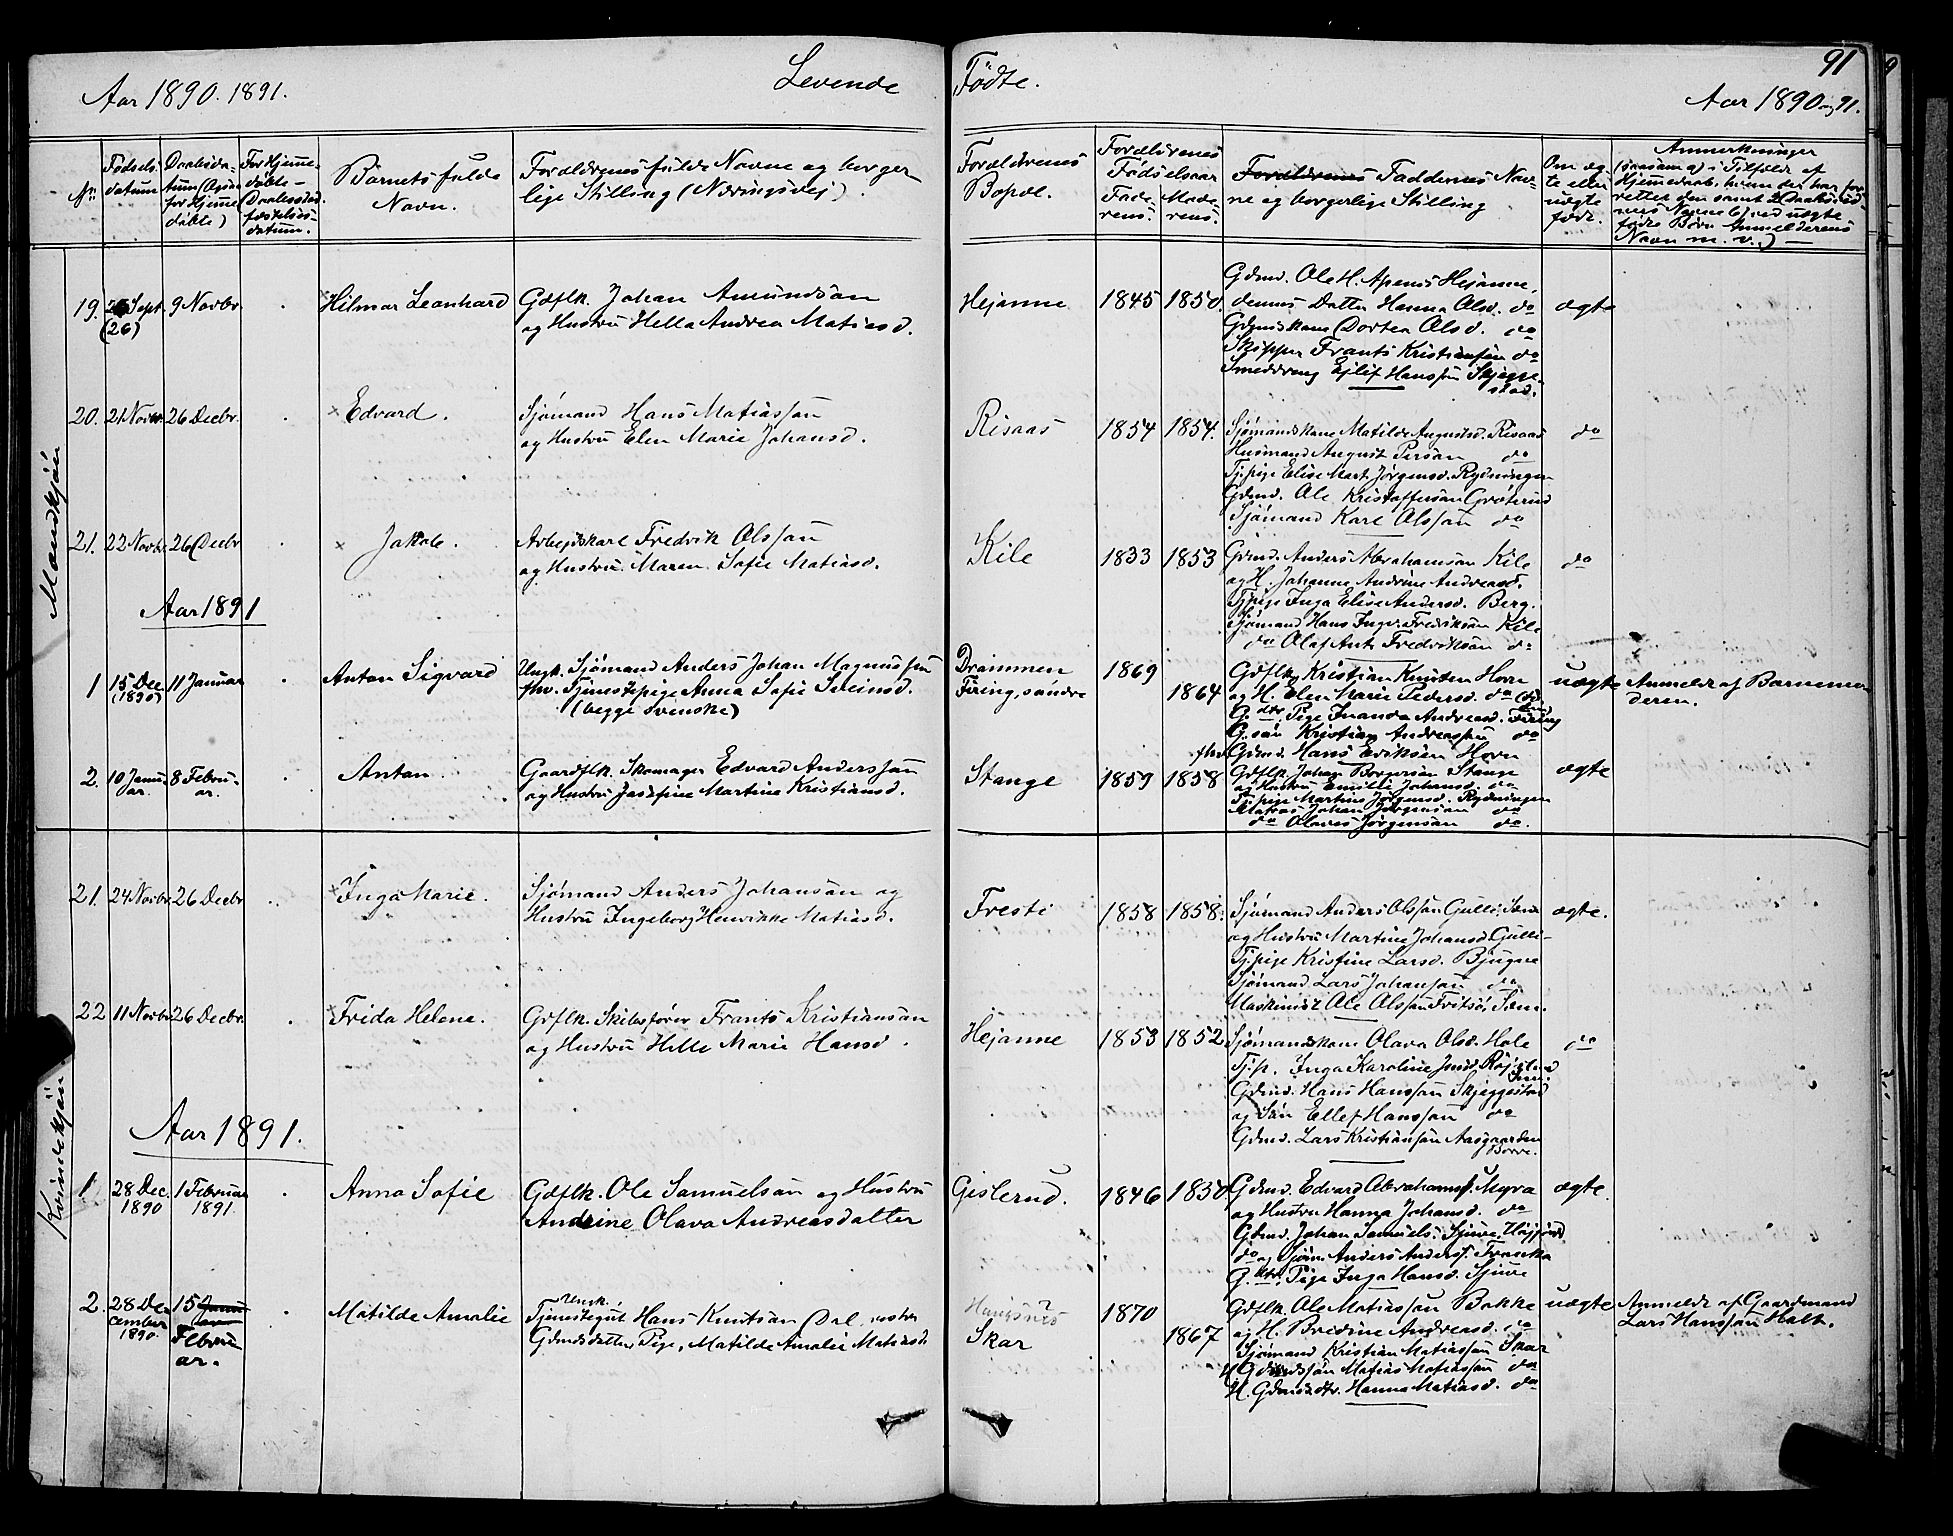 91
Aar 1890. 1891.
Levende
Fødte.
Aar 1890 og 91.
No
Fødsels-
datum
Daabsda-
tum (Ogsaa
for Hjemme
døbte)
For Hjemme-
døbte -
Daabsstad-
fæstelses-
datum.
Barnets fulde
Navn.
Forældrenes fulde Navne og borger-
lige Stilling (Næringsvej)
Forældrenes
Bopæl.
Forældrenes
Fødselsaar
Fade-
rens.
Mode-
rens.
Forældrenes Faddernes Nav-
ne og borgerlige Stilling
Om æg-
te eller
uægte
født.
Anmerkninger
(saasom a) i Tilfælde af
Hjemmedaab, hvem der har for-
rettet den samt 2 Daabsvid-
ners Navne b) ved uægte
fødte Børn Anmelderens
Navn m. v.) —
Mandkjøn
19. Sept. (26) 9 Novbr. Hilmar Leonhard
Gdflk. Johan Amundsøn
og Hustru Hella Andrea Matiasd.
Hejanne 1845 1850.
Gdmd. Ole H. Apenes Hejanne,
dennes Datter Hanna Olsd. do
Gdmdskone Dortea Olsd. do
Skipper Frants Kristiansøn do
Smeddreng Ejlif Hanssøn Skjegge-
stad.
ægte
20. 21 Novbr. 26 Decbr. Edvard.
Sjømand Hans Matiassøn
og Hustru Elen Marie Johansd.
Risaas 1854 1854.
Sjømandskone Matilde Augustsd. Risaas
Husmand August Persøn do
Tj.pige Elise Mart. Jørgensd. Rydningen
Gdmd. Ole Kristoffersøn Grøterud
Sjømand Karl Olssøn do
do
21. 22 Novbr. 26 Decbr. Jakob.
Arbejdskarl Fredrik Olssøn
og Hustru Maren Sofie Matiasd.
Kile 1833 1853
Gdmd. Anders Abrahamsøn Kile
og H. Johanne Andrine Andreasd.
Tj.pige Inga Elise Andersd. Berg.
Sjømand Hans Ingv. Fredriksøn Kile
do Olaf Ant. Fredriksøn do
do
Aar 1891
1 15 Dec. (1890) 11 Januar Anton Sigvard
Ungk. Sjømand Anders Johan Magnussøn
fhv. Tjenestepige Anna Sofie Sveinsd.
(begge svenske)
Drammen 1869
Firing, søndre 1864
Gdflk. Kristian Knutsøn Horn
og H. Olen Marie Pedersd. do
G. dtr. Pige Inanda Andreasd. Firing
G. søn Kristian Andreassøn do
fhv. Gdmd. Hans Eriksøn Horn
uægte Anmeldt af Barnemo-
deren.
2. 10 Janu-
ar. 8 Febru-
ar. Anton.
Gaardflk. Skomager Edvard Anderssøn
og Hustru Josefine Martine Kristiansd.
Stange 1859 1858
Gdflk. Johan Borgersøn Stange
og Hustru Emilie Johansd. do
Tj.pige Martine Jørgensd. Rydningen
Matros Johan Jørgensøn do
do Olaves Jørgensøn do.
ægte
Kvindekjøn
21. 24 Novbr. 26 Decbr. Inga Marie.
Sjømand Anders Johansøn og
Hustru Ingeborg Henrikke Matiasd.
Fresti 1858 1858.
Sjømand Anders Olssøn Gulli, Sem
og Hustru Martine Johansd. Gulli-
Tj.pige Kristine Larsd. Bjugne
Sjømand Lars Johansøn do
Maskinist Ole Olssøn Fritsø, Sem.
ægte.
22 11 Novbr. 26 Decbr. Frida Helene.
Gdflk. Skibsfører Frants Kristiansøn
og Hustru Helle Marie Hansd.
Hejanne 1853 1852
Sjømandskone Olava Olsd. Hole
Tj.p. Inga Karoline
Gdmd. Hans Hanssøn Skjeggestad
og Søn Ellef Hanssøn do
Gdmd. Lars Kristiansøn Aasgaarden
Borre.
do
Aar 1891.
1 28 Dec.
1890 1 Februar
1891. Anna Sofie
Gdflk. Ole Samuelsøn og Hustru
Andrine Olava Andreasdatter
Gislerud. 1846 1850
Gdmd. Edvard Abrahams. Myra
og Hustru Hanna Johansd. do
Gdmd. Johan Samuels. Sjue, Højjord
do og Sjøm. Anders Anders.
G. dtr. Pige Inga Hansd. Sjue
ægte.
2. 28 De-
cember
1890. 15 Janu-
ar
Febru-
ar. Matilde Amalie
Ungk.
Tjenestegut Hans Knutsøn Dal, nordre
Gdmdsdatter, Pige, Matilde Amalie Matiasd.
1870
Skar 1867
Gdflk. Ole Matiassøn Bakke
og H. Bredine Andreasd. do
Sjømand Kristian Matiassøn Skar
Gdmdssøn Matias Matiassøn do
Gdmdsdtr. Hanna Matiasd. do
uægte Anmeldt af Gaardmand
Lars Hanssøn Holt.